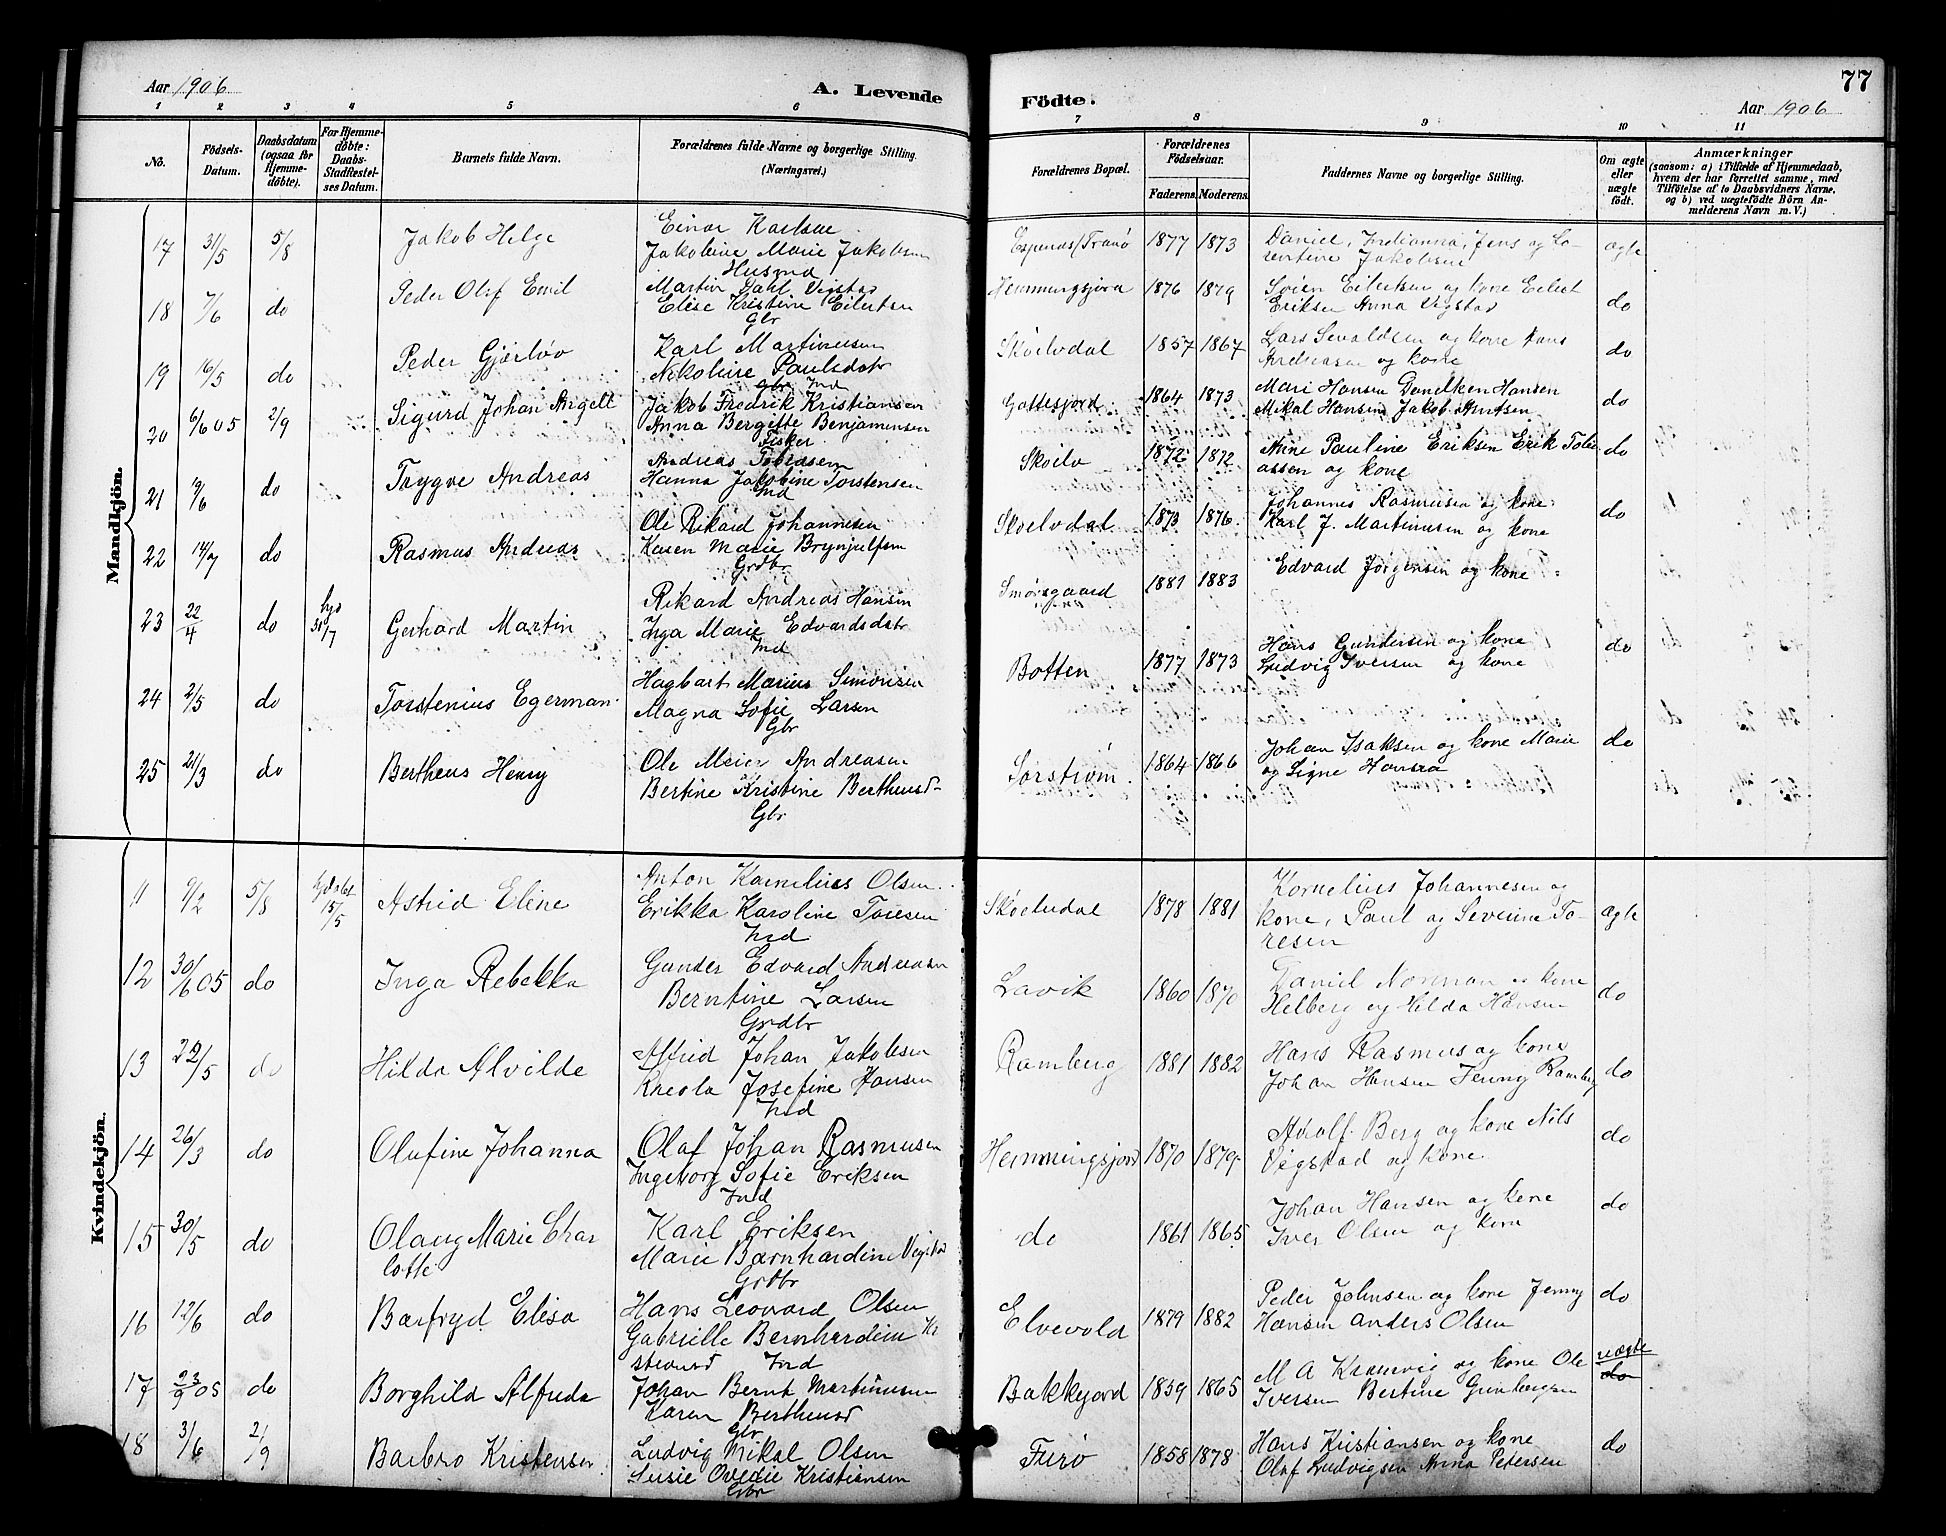 Aar 1906
A. Levende
1 2 3 4 5 6
No.
Födsels-
Datum.
Daabsdatum
(ogsaa for
Hjemme-
döbte).
For Hjemme-
döbte:
Daabs-
Stadfæstel-
ses Datum.
Barnets fulde Navn.
Forældrenes fulde Navne og borgerlige Stilling.
(Næringsvei.)
Mandkjön.
17 31/5 5/8 Jakob Helge
Einar Karlsen
Jakobine Marie Jakobsen
Husmd
18 7/6 do Peder Olaf Emil
Martin Dahl Vigstad
Elise Kristine Eilertsen
Gbr
19 16/5 do Peder Gjørløv
Karl Martinusen
Nikoline Paulsdatr
Gbr Ind
20 6/6 05 2/9 Sigurd Johan Angell
Jakob Fredrik Kristiansen
Anna Bergitte Benjaminsen
Fisker
21 19/6 do Trygve Andreas
Andreas Tobiasen
Hanna Jakobine Torstensen
Ind
22 14/7 do Rasmus Andreas
Ole Rikard Johannesen
Karen Marie Brynjulfsen
Grdbr
23 22/4 do 31/7 Gerhard Martin
Rikard Andreas Hansen
Inga Marie Edvardsdatr
Ind
24 2/5 do Torstenius Egerman
Hagbart Marius Simonsen
Magna Sofie Larsen
Gbr
25 21/3 do Bertheus Henry
Ole Meier Andreasen
Bertine Kristine Bertheusd-
Gbr
Kvindekjön.
11 9/2 5/8 15/5 Astrid Eline
Anton Kornelius Olsen
Erikka Karoline Toresen
Ind
12 30/6 05 do Inga Rebekka
Gunder Edvard Andreasen
Berntine Larsen
Grdbr
13 22/5 do Hilda Alvilde
Alfrid Johan Jakobsen
Kreola Josefine Hansen
Ind
14 26/3 do Olufine Johanna
Olaf Johan Rasmusen
Ingeborg Sofie Eriksen
Ind
15 30/5 do Olaug Marie Char
lotte
Karl Eriksen
Marie Barnhardine Vigstad
Grdbr
16 12/6 do Barfryd Elisa
Hans Leonard Olsen
Gabrielle Bernhardein Kr
Ind
17 23/9 05 do Borghild Alfrida
Johan Bernt Martinusen
Karen Bertheusd
Gbr
18 3/6 2/9 Barbro Kristensen
Ludvig Mikal Olsen
Susie Ovedie Kristiansen
Grbr
Födte.
77
Aar 1906
7 8 9 10 11
Forældrenes Bopæl.
Forældrenes
Födselsaar.
Faderens. Moderens.
Faddernes Navne og borgerlige Stilling.
Om ægte
eller
uægte
födt.
Anmærkninger
(saasom: a) i Tilfælde af Hjemmedaab,
hvem der har forrettet samme, med
Tilföielse af to Daabsvidners Navne.
og b) ved uægtefödte Börn An-
melderens Navn m. V.)
Espenes/Tranø 1877 1873 Daniel, Indianna, Jens og La-
rentine Jakobsen ægte
Hemmingsjora 1876 1879 Søren Eilertsen og kone Eilert
Eriksen Anna Vigstad do
Skoelvdal 1857 1867 Lars Sevaldsen og kone Hans
Andreasen og kone do
Gottesjord 1864 1873 Mari Hansen Danilken Hansen
Mikal Hansen Jakob Arntsen do
Skoelv 1872 1872 Anne Pauline Eriksen Erik Tobi
assen og kone do
Skoelvdal 1873 1876 Johannes Rasmusen og kone
Karl J. Martinusen og kone do
Smørsgaard 1881 1883 Edvard Jørgensen og kone
Botten 1877 1873 Hans Gundersen og kone
Ludvig Iversen og kone do
Sørstrøm 1864 1866 Johan Isaksen og kone Marie
og Signe Hansen do
Skoelvdal 1878 1881 Kornelius Johannesen og
kone, Paul og Severine To-
resen ægte
Lavik 1860 1870 Daniel Norman og kone
Helberg og Hilda Hansen do
Ramberg 1881 1882 Hans Rasmus og kone
Johan Hansen Jenny Ramberg do
Hemmingsjord 1870 1879 Adolf Berg og kone Nils
Vigstad og kone do
do 1861 1865 Johan Hansen og kone
Iver Olsen og kone do
Elvevold 1879 1882 Peder Johnsen og kone Jenny
Hansen Anders Olsen do
Bakkejord 1859 1865 M A Kramvig og kone Ole
Iversen Bertine uægte
do
Furø 1858 1878 Hans Kristiansen og kone
Olaf Ludvigsen Anna Petersen do